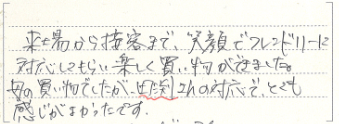 来場から接客まで、笑顔でフレンドリーに
対応してもらい楽しく買い物ができました。
母の買い物でしたが、さんの対応で、とても
感じがよかったです。